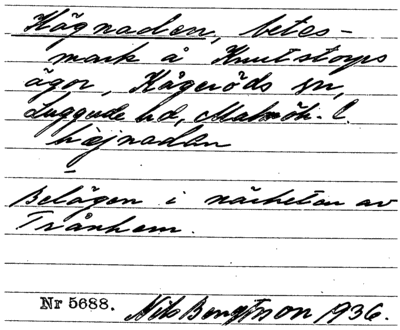 Hägnaden, betes-
mark å Knutstorps
ägor, Kågeröds sn,
Luggude hd, Malmöh. l.
hæjnadən
Belägen i närheten av
Trånhem.
Nr 5688. Nils Bengtsson 1936.